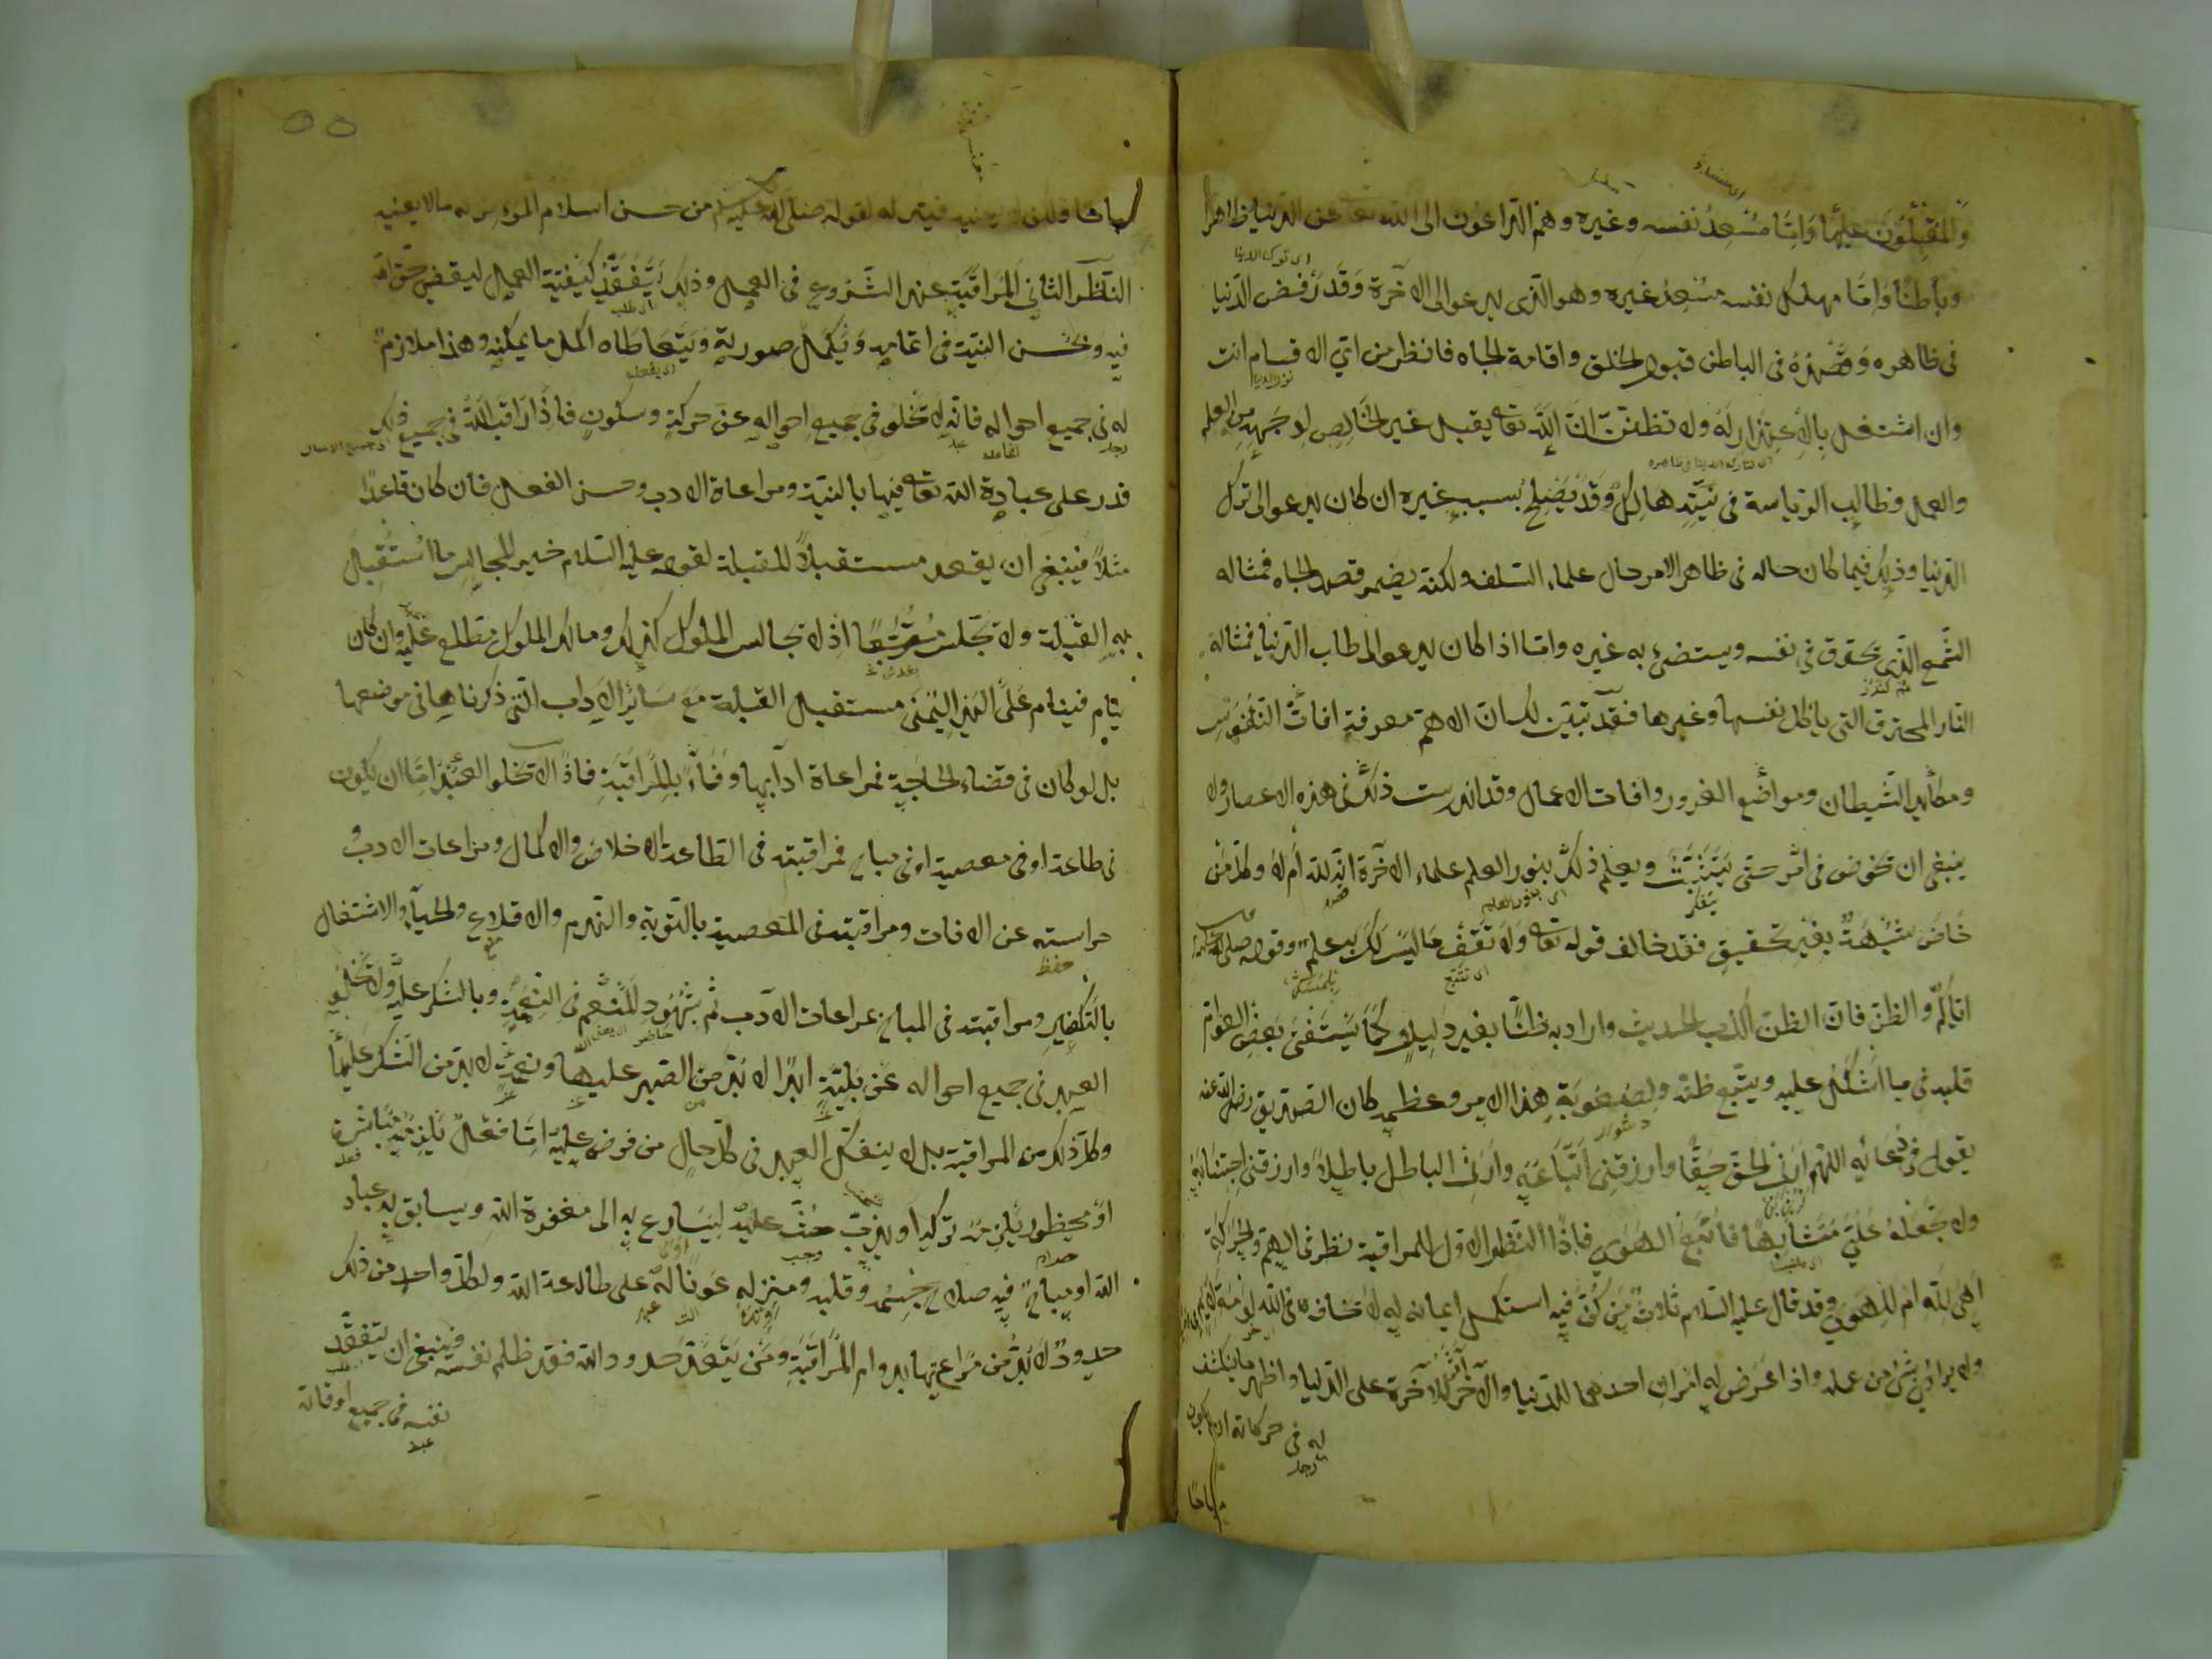 والمقبلون عليها واما مسعد نفسه وغيره وهم الداعون الى الله تعا عن الدنيا ظاهرا
وباطنا واما مهلك نفسه مسعد غيره وهو الذى يدعو الى الاخرة وقد رفض الدنيا
فى ظاهره وقصده فى الباطن قبول الخلق واقامة الجاه فانظر من اي الاقسام انت
وان اشتغل بالاعتذار له ولا تظنن ان الله تعا يقبل غير الخالص لوجهه من العلم
والعمل فطالب الرياسة فى نيته هالك وقد يصلح بسبب غيره ان كان يدعو الى ترك
الدنيا وذلك فيما كان حاله فى ظاهر الامر حال علماء السلف ولكنه يضمر قصد الجاه فمثاله
الشمع الذى يحترق فى نفسه ويستضئ به غيره واما اذا كان يدعو الى طلب الدنيا فمثاله
النار المحترق التى ياكل نفسها وغيرها فقد تبين لك ان الاهم معرفة افات النفوس
ومكايد الشيطان ومواضع الغرور وافات الاعمال وقد اندرست ذلك فى هذه الاعصار ولا
ينبغى ان يخوض فى امر حتى يتثبت ويعلم ذلك بنور العلم علماء الاخرة انه لله ام لا وكل من
خاض شبهة بغير تحقيق فقد خالف قوله تعا ولا تقف ما ليس لك به علم وقوله صلى الله عليه
اياكم والظن فان الظن اكذب الحديث واراد به ظنا بغير دليل كما يستفتى بعض العوام
قلبه فى ما اشكل عليه ويتبع ظنه ولصعوبة هذا الامر وعظمه كان الصديق رضى الله عنه
يقول فى دعائه اللهم ارنى الحق حقا وارزقنى اتباعه وارنى الباطل باطلا وارزقنى اجتنابه
ولا تجعله على متشابها فاتبع الهوى فاذا النظر الاول للمراقبة نظر فى الهم والحركة
اهى لله ام للهوى وقد قال عليه السلام ثلاث من كن فيه استكمل ايمانه لا يخاف فى الله لومة لائم
ولا يرائى بشئ من عمله واذا عرض له امران احدهما للدنيا والاخر للاخرة اثر الاخرة على الدنيا واظهر ما ينكشف
له فى حركاته ان يكون
مباحا
مباحا ولكن لا يعنيه فيتركه لقوله صلى الله عليه وسلم من حسن اسلام المرء تركه ما لا يعنيه
النظر الثانى المراقبة عند الشروع فى العمل وذلك يتفقد كيفية العمل ليقضى حق الله
فيه ويحسن النية فى اتمامه ويكمل صورته ويتعاطاه اكمل ما يمكنه وهذا ملازم
له فى جميع احواله فانه لا تخلو فى جميع احواله عن حركة وسكون فاذا راقب الله فى جميع ذلك
قدر على عبادة الله تعا فيها بالنية ومراعاة الادب وحسن الفعل فان كان قاعدا
مثلا فينبغى ان يقعد مستقبلا للقبلة لقوله عليه السلام خير المجالس ما استقبل
به القبلة ولا تجلس متربعا اذ لا تجالس الملوك كذلك ومالك الملوك مطلع عليه وان كان
ينام فينام على اليد اليمنى مستقبل القبلة مع سائر الاداب التى ذكرناها فى موضعها
بل لو كان فى قضاء الحاجة فمراعاة ادابها وفاء بالمراقبة فاذا لا تخلو العبد اما ان يكون
فى طاعة او فى معصية او فى مباح فمراقبته فى الطاعة الاخلاص والاكمال ومراعات الادب
حراسته عن الافات ومراقبته فى المعصية بالتوبة والندم والاقلاع والحياء والاشتغال
بالتكفير ومراقبته فى المباح بمراعات الادب ثم بشهود المنعم فى النعمة وبالشكر عليه ولا تخلو
العبد فى جميع احواله عن بلية ابدا لا بد من الصبر عليها ونعمة لا بد من الشكر عليها
وكل ذلك من المراقبة بل لا ينفك العبد فى كل حال من فرض عليه اما فعل يلزمه مباشرة
او محظور يلزمه تركه او ندب حث عليه ليسارع به الى مغفرة الله ويسابق به عباد
الله او مباح فيه صلاح جسمه وقلبه ومنزله عونا له على طاعة الله ولكل واحد من ذلك
حدود لا بد من مراعيتها بدوام المراقبة ومن يتعد حدود الله فقد ظلم نفسه فينبغى ان يتفقد
نفسه فى جميع اوقاته